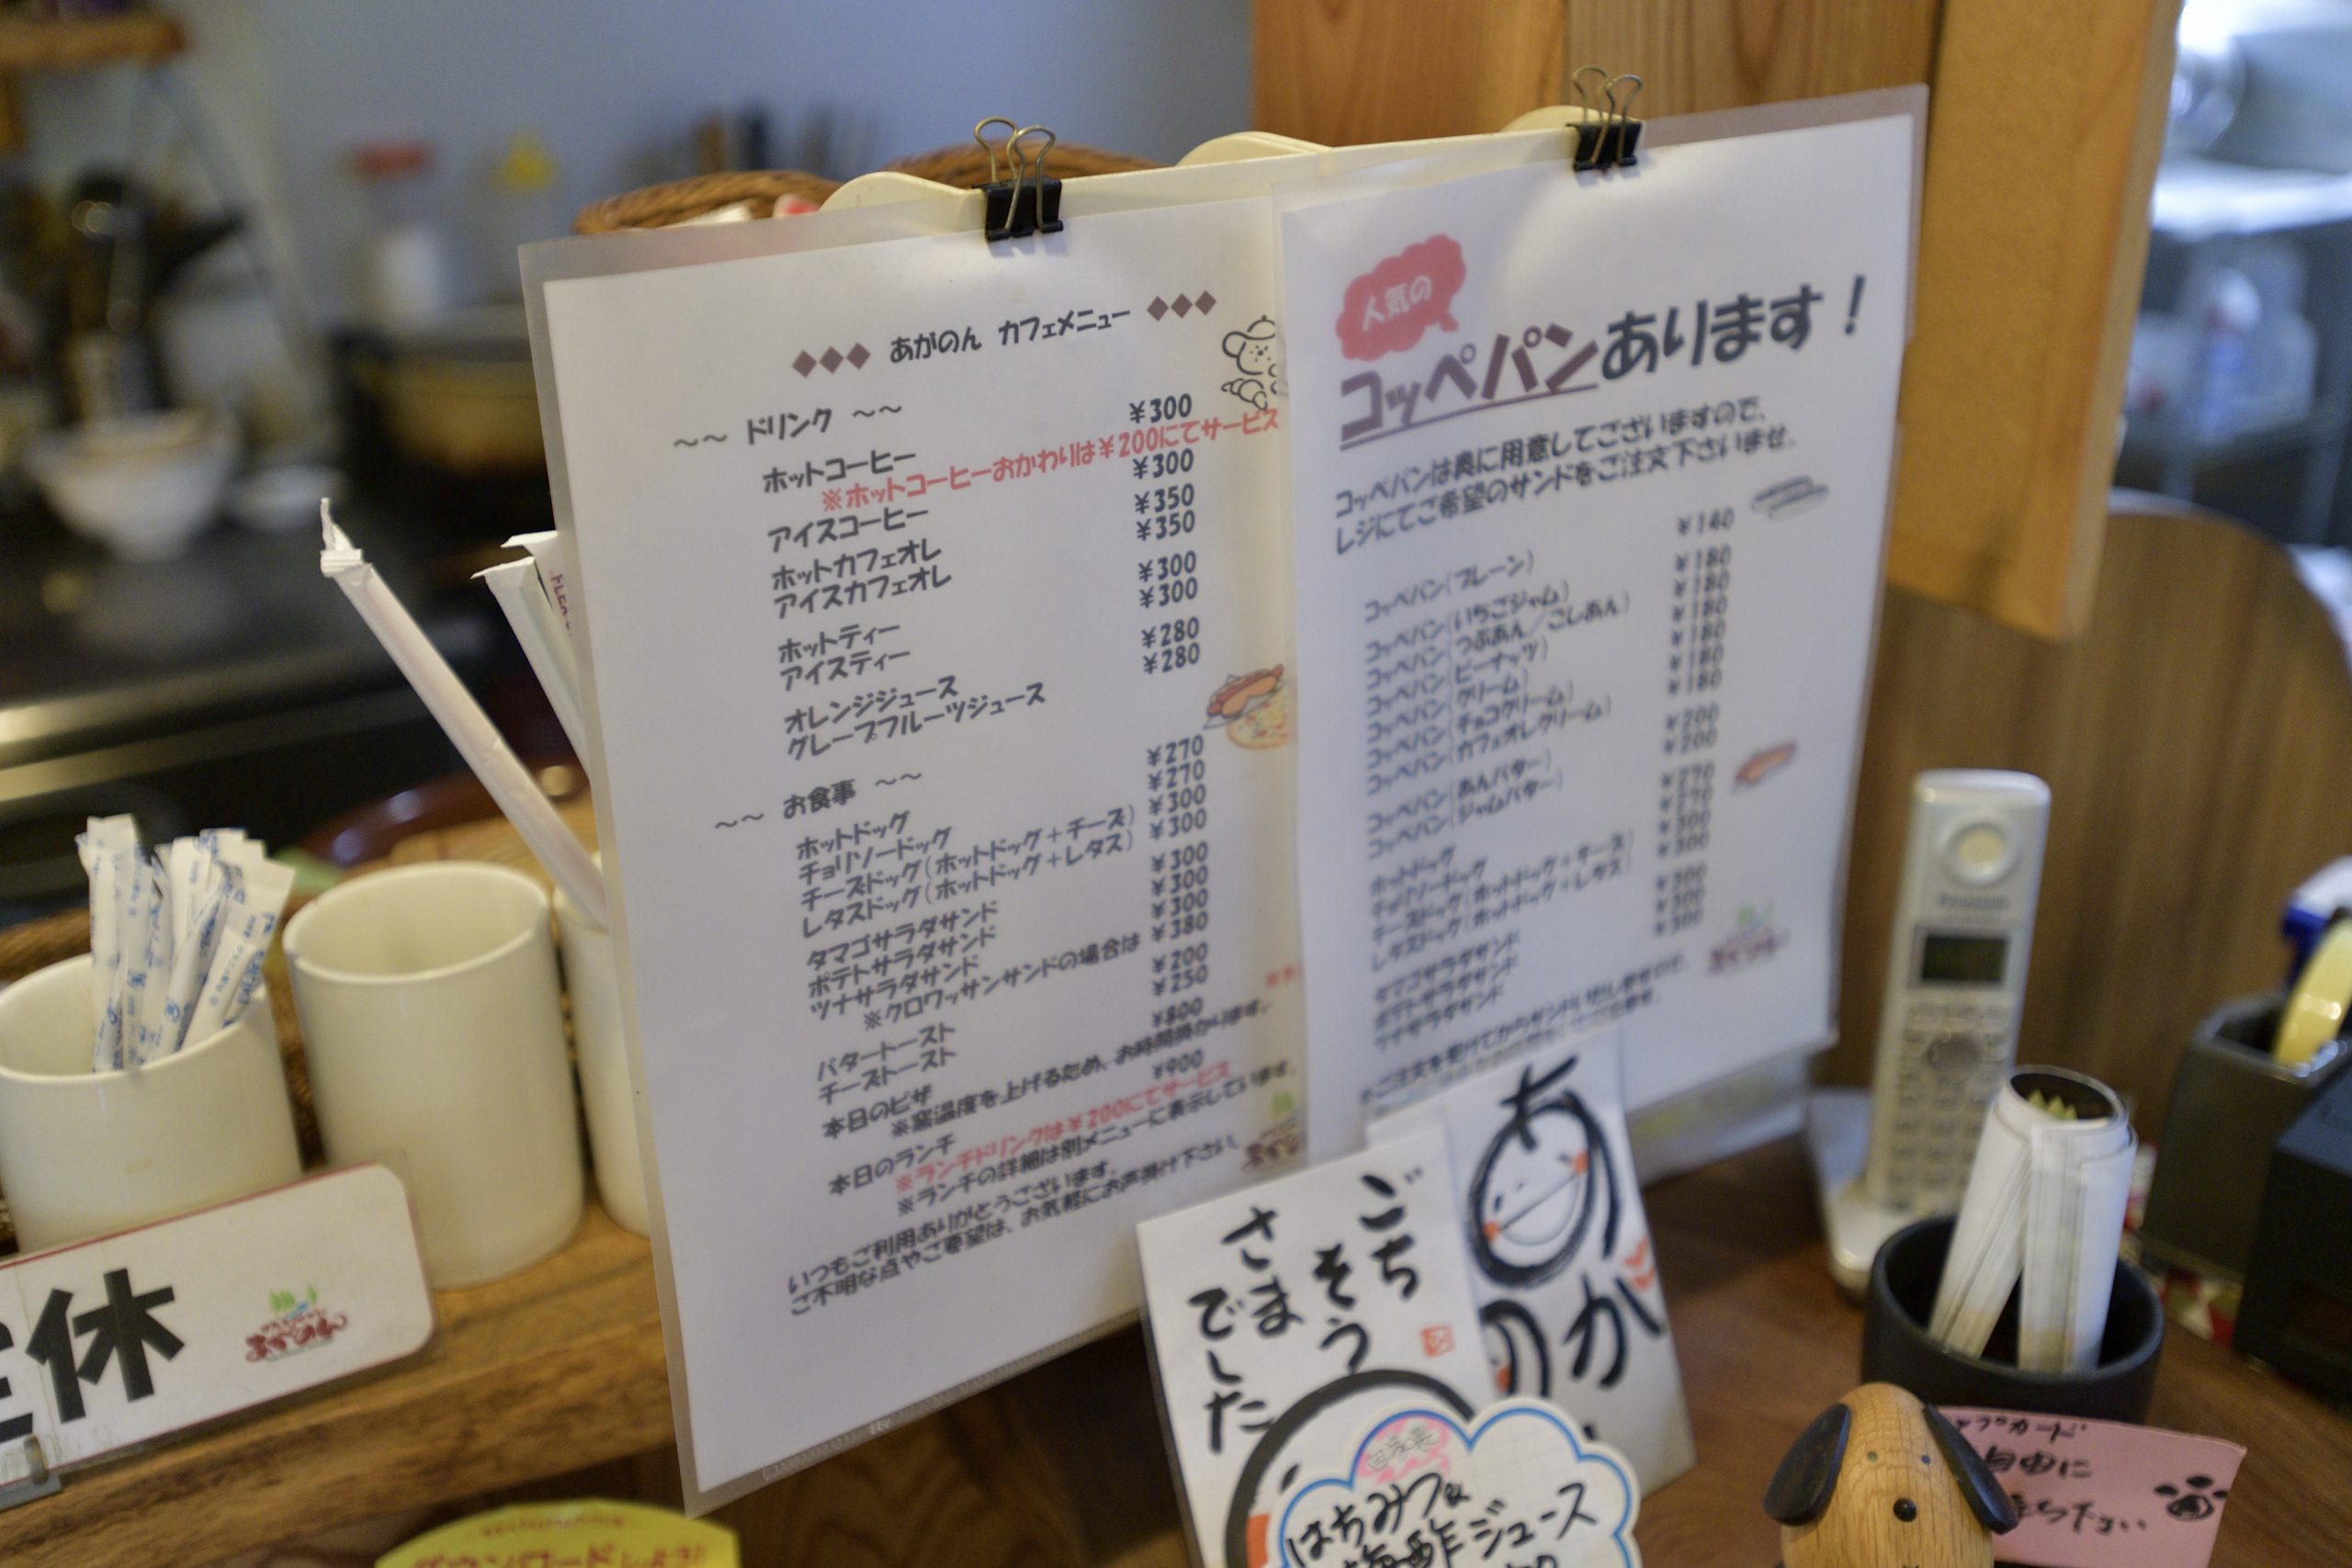 ◆◆◆ あがのん カフェメニュー ◆◆◆
～～ ドリンク ～～
ホットコーヒー ¥300
※ホットコーヒーおかわりは¥200にてサービス
アイスコーヒー ¥300
ホットカフェオレ ¥350
アイスカフェオレ ¥350
ホットティー ¥300
アイスティー ¥300
オレンジジュース ¥280
グレープフルーツジュース ¥280
～～ お食事 ～～
ホットドッグ ¥270
チョリソードッグ ¥270
チーズドッグ(ホットドッグ+チーズ) ¥300
レタスドッグ(ホットドッグ+レタス) ¥300
タマゴサラダサンド ¥300
ポテトサラダサンド ¥300
ツナサラダサンド ¥300
※クロワッサンサンドの場合は ¥380
バタートースト ¥200
チーズトースト ¥250
本日のピザ ¥800
※窯温度を上げるため、お時間掛かります。
本日のランチ ¥900
※ランチドリンクは¥200にてサービス
※ランチの詳細は別メニューに表示しています。
いつもご利用ありがとうございます。
ご不明な点やご要望は、お気軽にお声掛け下さい。
人気の
コッペパンあります！
コッペパンは奥に用意してございますので、
レジにてご希望のサンドをご注文下さいませ。
コッペパン(プレーン) ¥140
コッペパン(いちごジャム) ¥180
コッペパン(つぶあん／こしあん) ¥180
コッペパン(ピーナッツ) ¥180
コッペパン(クリーム) ¥180
コッペパン(チョコクリーム) ¥180
コッペパン(カフェオレクリーム) ¥180
コッペパン(あんバター) ¥200
コッペパン(ジャムバター) ¥200
ホットドッグ ¥270
チョリソードッグ ¥270
チーズドッグ(ホットドッグ+チーズ) ¥300
レタスドッグ(ホットドッグ+レタス) ¥300
タマゴサラダサンド ¥300
ポテトサラダサンド ¥300
ツナサラダサンド ¥300
休
あがのん
ごち
そう
さま
でした
あかの
はちみつ&
梅酢ジュース
Panasonic
カード
自由に
下さい